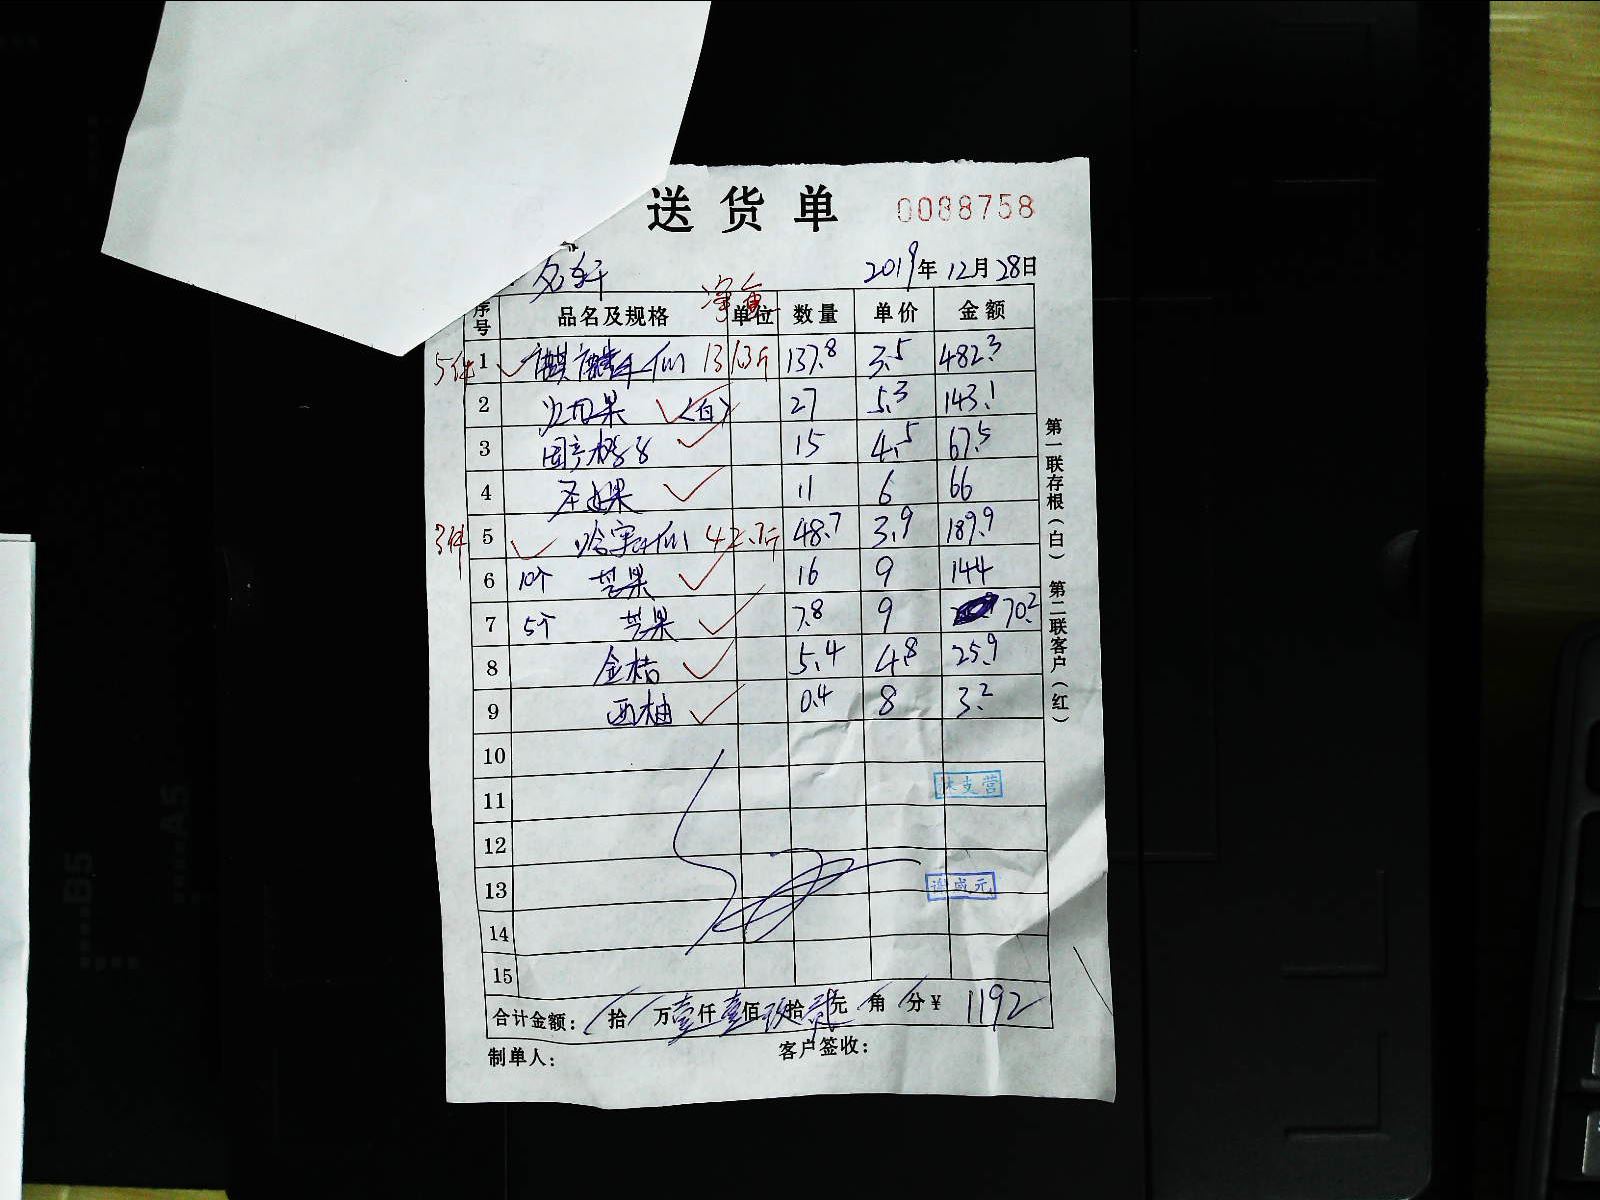 送货单 0088758
名轩 2019年12月28日
净重
序号 品名及规格 单位 数量 单价 金额
5件 1 麒麟瓜 13 13斤 137.8 3.5 482.3
2 (白) 27 5.3 143.1
3 国产 15 4.5 67.5
4 圣女果 11 6 66
3件 5 哈密瓜 42.7斤 48.7 3.9 189.9
6 10个 芒果 16 9 144
7 5个 芒果 7.8 9 70.2
8 金桔 5.4 4.8 25.9
9 西柚 0.4 8 3.2
10
11 支营
12
13 谢咸元
14
15
合计金额: 拾 万壹仟壹佰玖拾贰元 角 分¥ 1192
制单人: 客户签收:
第一联存根(白) 第二联客户(红)
B5
A5